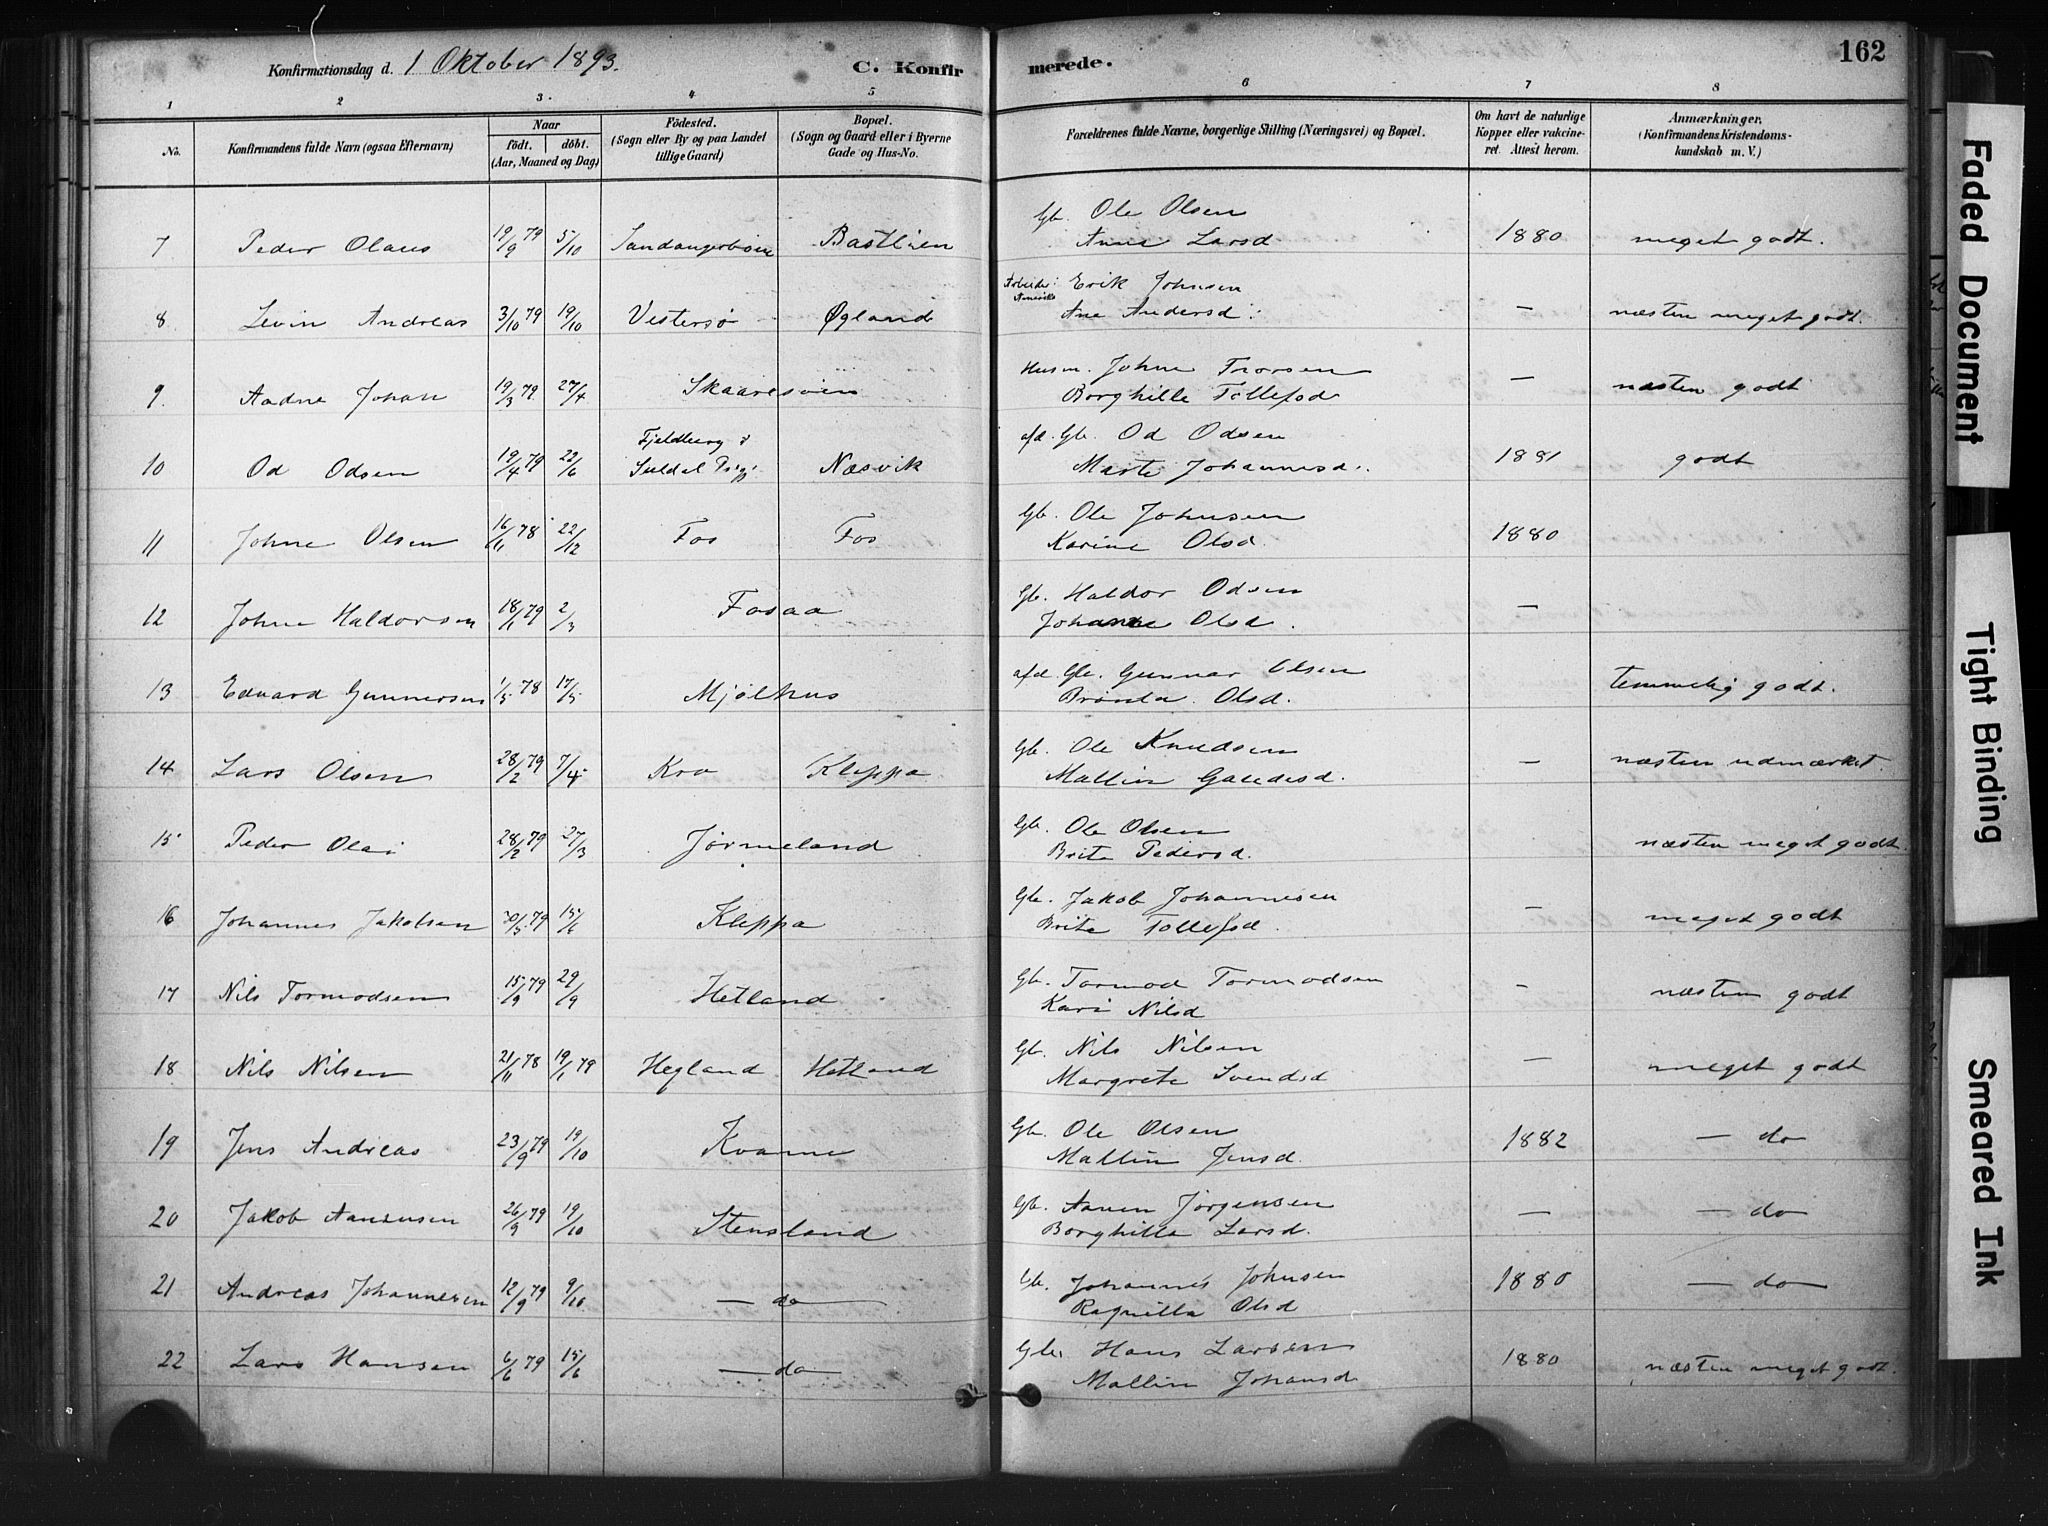 Konfirmationsdag d. 1 Oktober 1893. C. Konfirmerede. 162
1 2 3. 4 5 6 7 8
No. Konfirmandens fulde Navn (ogsaa Efternavn) Naar födt. döbt. (Aar, Maaned og Dag) Födested. (Sogn eller By og paa Landet tillige Gaard) Bopæl. (Sogn og Gaard eller i Byerne Gade og Hus-No. Forældrenes fulde Navne, borgerlige Stilling (Næringsvei) og Bopæl. Om havt de naturlige Kopper eller vakcineret. Attest herom. Anmærkninger. (Konfirmandens Kristendomskundskab m. V.)
7 Peder Olaus 19/9 79 5/10 Bastlien Gb. Ole Olsen
Anna Larsd 1880 meget godt.
8 Levin Andreas 3/10 79 19/10 Vestersø Øgland Arbeider Erik Johnsen
Ane Andersd. — næsten meget godt.
9. Aadne Johan 19/3 79 27/4 Skaaresøien Husm. Johne
Borghille Tollefsd — næsten godt
10 Od Odsen 19/4 79 22/6 Fjeldberg
Suldal Næsvik afd. Gb. Od Odsen
Marte Johannesd. 1881 godt
11 Johne Olsen 16/11 78 22/12 Fos Fos Gb. Ole Johnsen
Karine Olsd. 1880
12 Johne Haldorsen 18/1 79 2/3 Fosaa Gb. Haldor Odsen
Johanne Olsd. —
13 Edvard Gunnersen 1/5 78 17/5 Mjølhus afd. Gb. Gunnar Olsen
Olsd. temmelig godt.
14 Lars Olsen 28/2 79 7/4 Kro Kleppa Gb. Ole Knudsen
Mallin — næsten udmærket.
15 Peder Olai 28/2 79 27/3 Jørmeland Gb. Ole Olsen
Brite Pedersd. næsten meget godt.
16 Johannes Jakobsen 30/5 79 15/6 Kleppa Gb. Jakob Johannesen
Brite Tollefsd. — meget godt
17 Nils Tormodsen 15/9 79 29/9 Hetland Gb. Tormod Tormodsen
Kari Nilsd — næsten godt
18 Nils Nilsen 21/11 78 19/1 79 Hegland Hetland Gb. Nils Nilsen
Margrete Svendsd — meget godt
19 Jens Andreas 23/9 79 19/10 Kvame Gb. Ole Olsen
Mallin Jensd. 1882 — do
20 Jakob Aanensen 26/9 79 19/10 Stensland Gb. Aanen Jørgensen
Borghilla Larsd. — — do
21 Andreas Johannesen 12/9 79 9/10 — do — Gb. Johannes Johnsen
Ragnilla Olsd 1880 — do —
22 Lars Hansen 6/6 79 15/6 — do — Gb. Hans Larsen
Mallin Johansd 1880 næsten meget godt.
Faded Document
Tight Binding
Smeared Ink